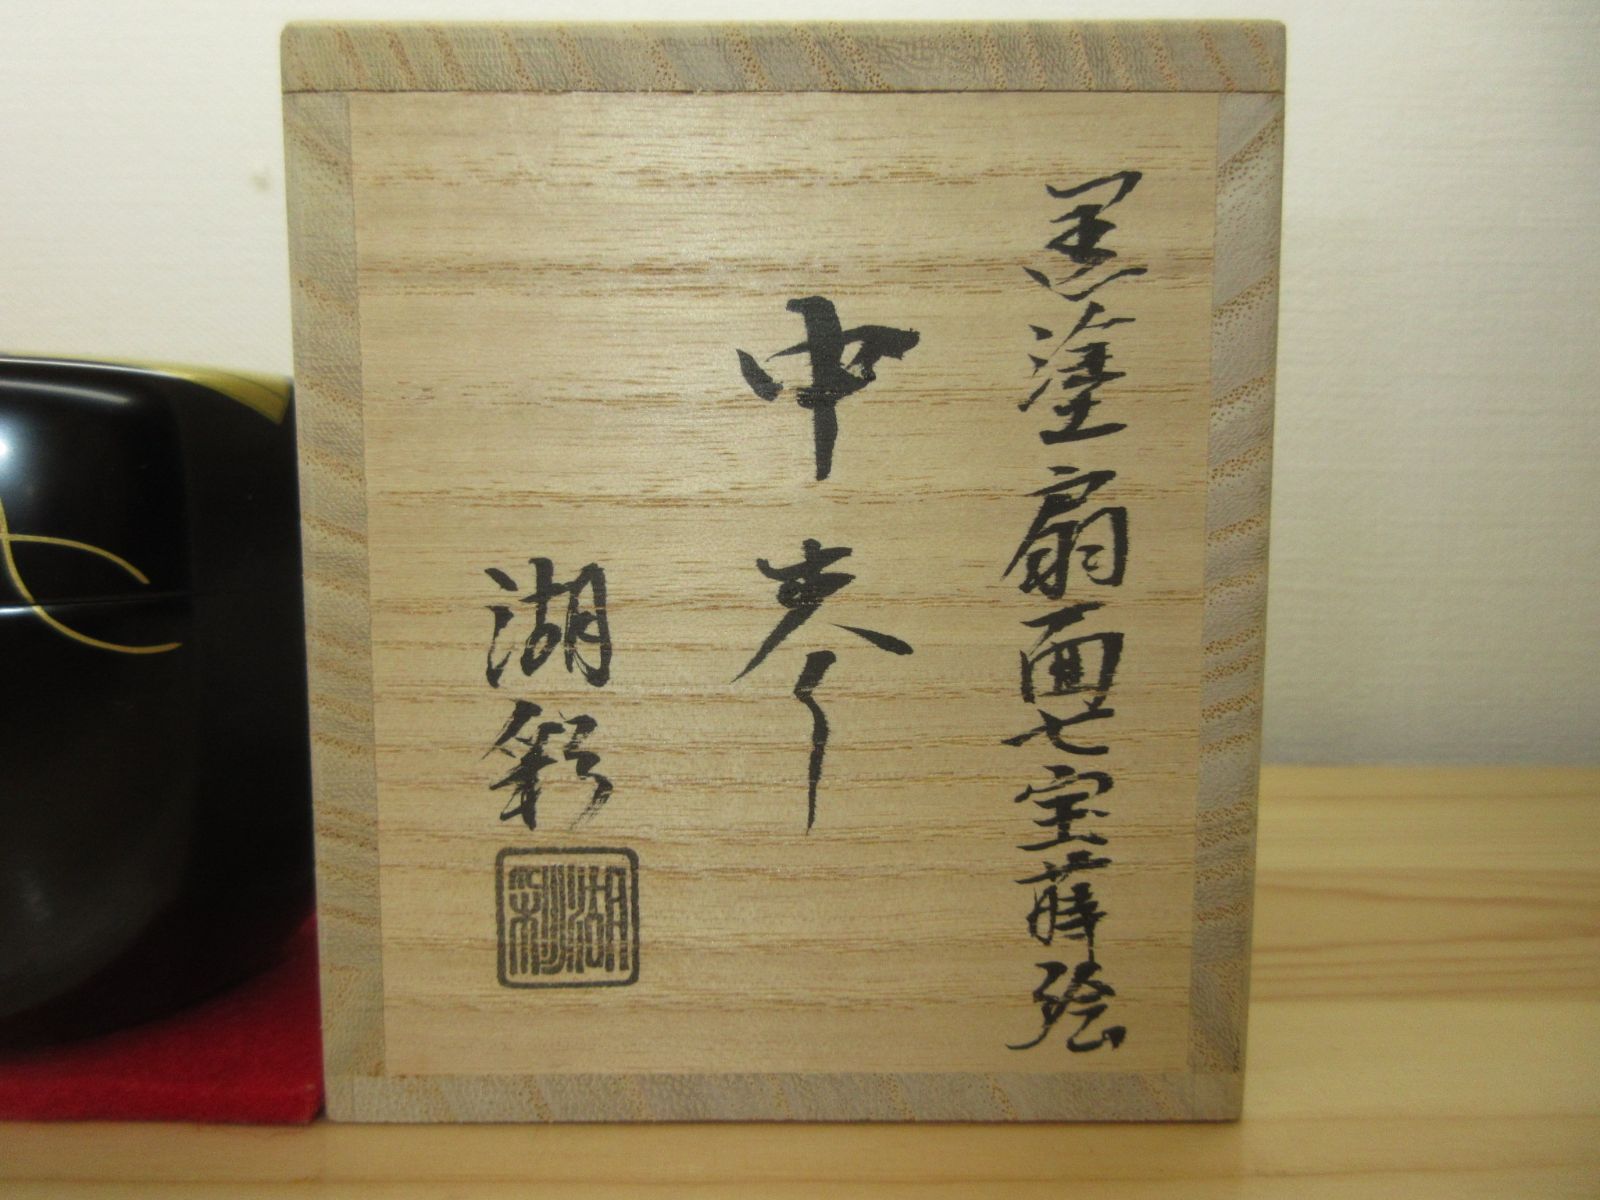 黒塗扇面七宝蒔絵
中棗
湖彩
湖彩